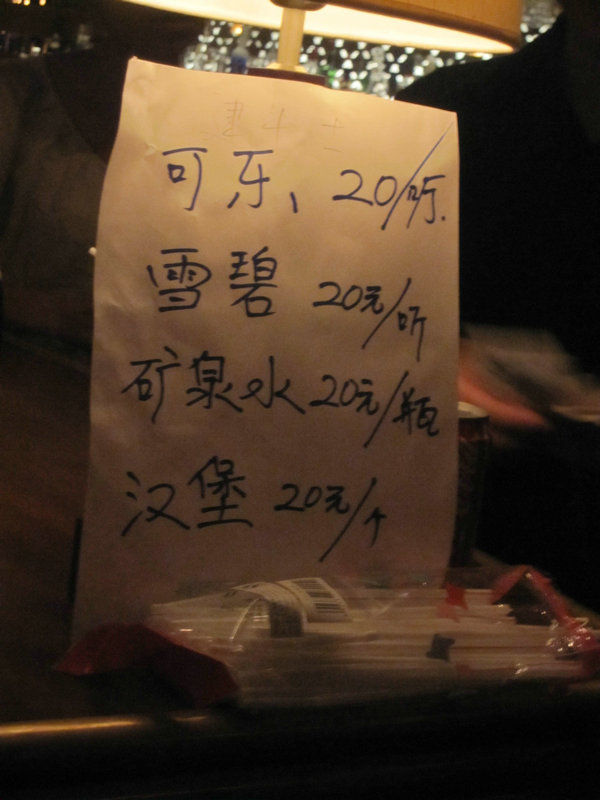 可乐 20/听.
雪碧 20元/听
矿泉水 20元/瓶
汉堡 20元/个